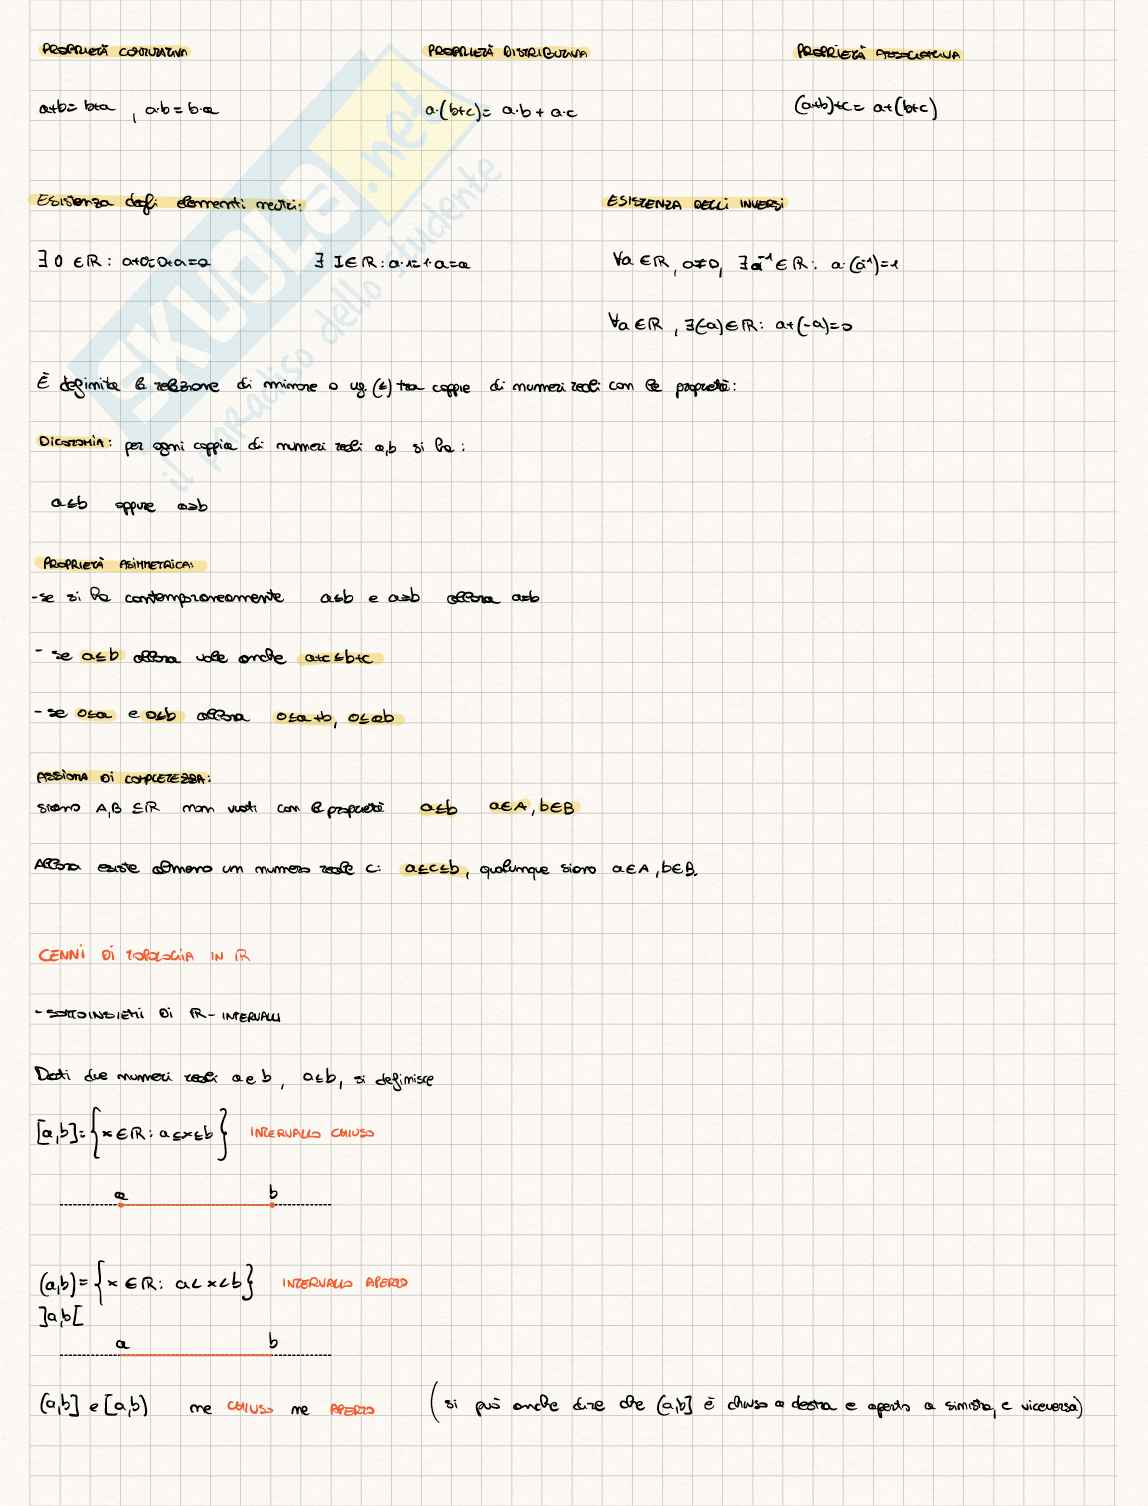 PROPRIETÀ COMMUTATIVA PROPRIETÀ DISTRIBUTIVA PROPRIETÀ ASSOCIATIVA
a+b=b+a , a·b=b·a a·(b+c)= a·b + a·c (a+b)+c= a+(b+c)
Esistenza degli elementi neutri: ESISTENZA DELLI INVERSI
∃ 0 ∈ℝ: a+0=0+a=a ∃ 1∈ℝ: a·1=1·a=a ∀a∈ℝ, a≠0, ∃a⁻¹∈ℝ: a·(a⁻¹)=1
∀a∈ℝ, ∃(-a)∈ℝ: a+(-a)=0
È definita la relazione di minore o ug. (≤) tra coppie di numeri reali con le proprietà:
DICOTOMIA: per ogni coppia di numeri reali a,b si ha:
a≤b oppure a≥b
PROPRIETÀ ASIMMETRICA:
-se si ha contemporaneamente a≤b e a≥b allora a=b
- se a≤b allora vale anche a+c≤b+c
- se 0≤a e 0≤b allora 0≤a+b, 0≤ab
ASSIOMA DI COMPLETEZZA:
siano A,B ⊆ℝ non vuoti con la proprietà a≤b a∈A, b∈B
Allora esiste almeno un numero reale c: a≤c≤b, qualunque siano a∈A, b∈B.
CENNI DI TOPOLOGIA IN ℝ
- SOTTOINSIEMI DI ℝ - INTERVALLI
Dati due numeri reali a e b, a≤b, si definisce
[a,b]={x∈ℝ: a≤x≤b} INTERVALLO CHIUSO
a b
(a,b)={x∈ℝ: a<x<b} INTERVALLO APERTO
]a,b[
a b
(a,b] e [a,b) ne CHIUSO ne APERTO (si può anche dire che (a,b] è chiuso a destra e aperto a sinistra, e viceversa)
SKUOLA.net
il paradiso dello studente